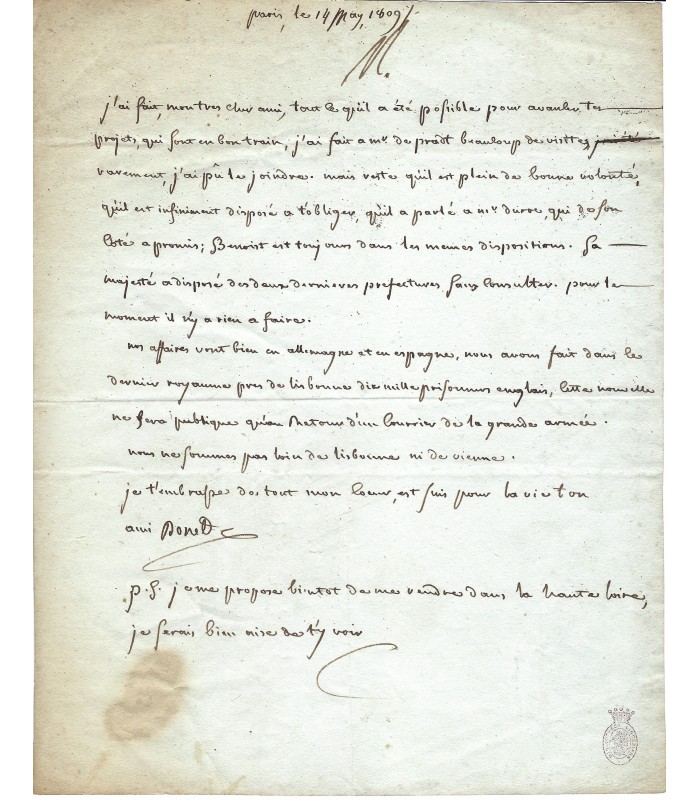 paris, le 14 May, 1809/
M.
j'ai fait, mon tres cher ami, tout ce qu'il a été possible pour avancer tes
projets, qui sont en bon train, j'ai fait a mr. de pradt beaucoup de visites,
rarement, j'ai pû le joindre. mais reste qu'il est plein de bonne volonté,
qu'il est infiniment disposé a t'obliger, qu'il a parlé a mr. duroc, qui de son
Côté a promis; Benoist est toujours dans les memes dispositions. Sa
majesté a disposé des deux dernieres prefectures sans Consulter. pour le
moment il n'y a rien a faire.
nos affaires vont bien en allemagne et en espagne, nous avons fait dans le
dernier royaume pres de lisbonne dix mille prisonniers englais, Cette nouvelle
ne sera publique qu'au Retour d'un Courrier de la grande armée.
nous ne sommes pas loin de lisbonne ni de vienne.
je t'embrasse de tout mon Coeur, est suis pour la vie ton
ami
p.S. je me propose bientot de me rendre dans la haute loire,
je serais bien aise de t'y voir